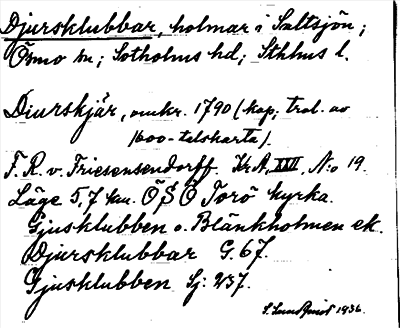 Djursklubbar, holmar i Saltsjön;
Ösmo sn; Sotholms hd; Sthlms l.
Diurskjär, omkr. 1790 (kop; trol. av
1600-talskarta).
F. R. v. Friesensendorff Kr. A. XXII, N:o 19.
Läge 5,7 km. ÖSÖ Torö kyrka.
Gjusklubben o. Blänkholmen ek.
Djursklubbar G. 67.
Gjusklubben Sj: 237.
S. Lundquist 1936.